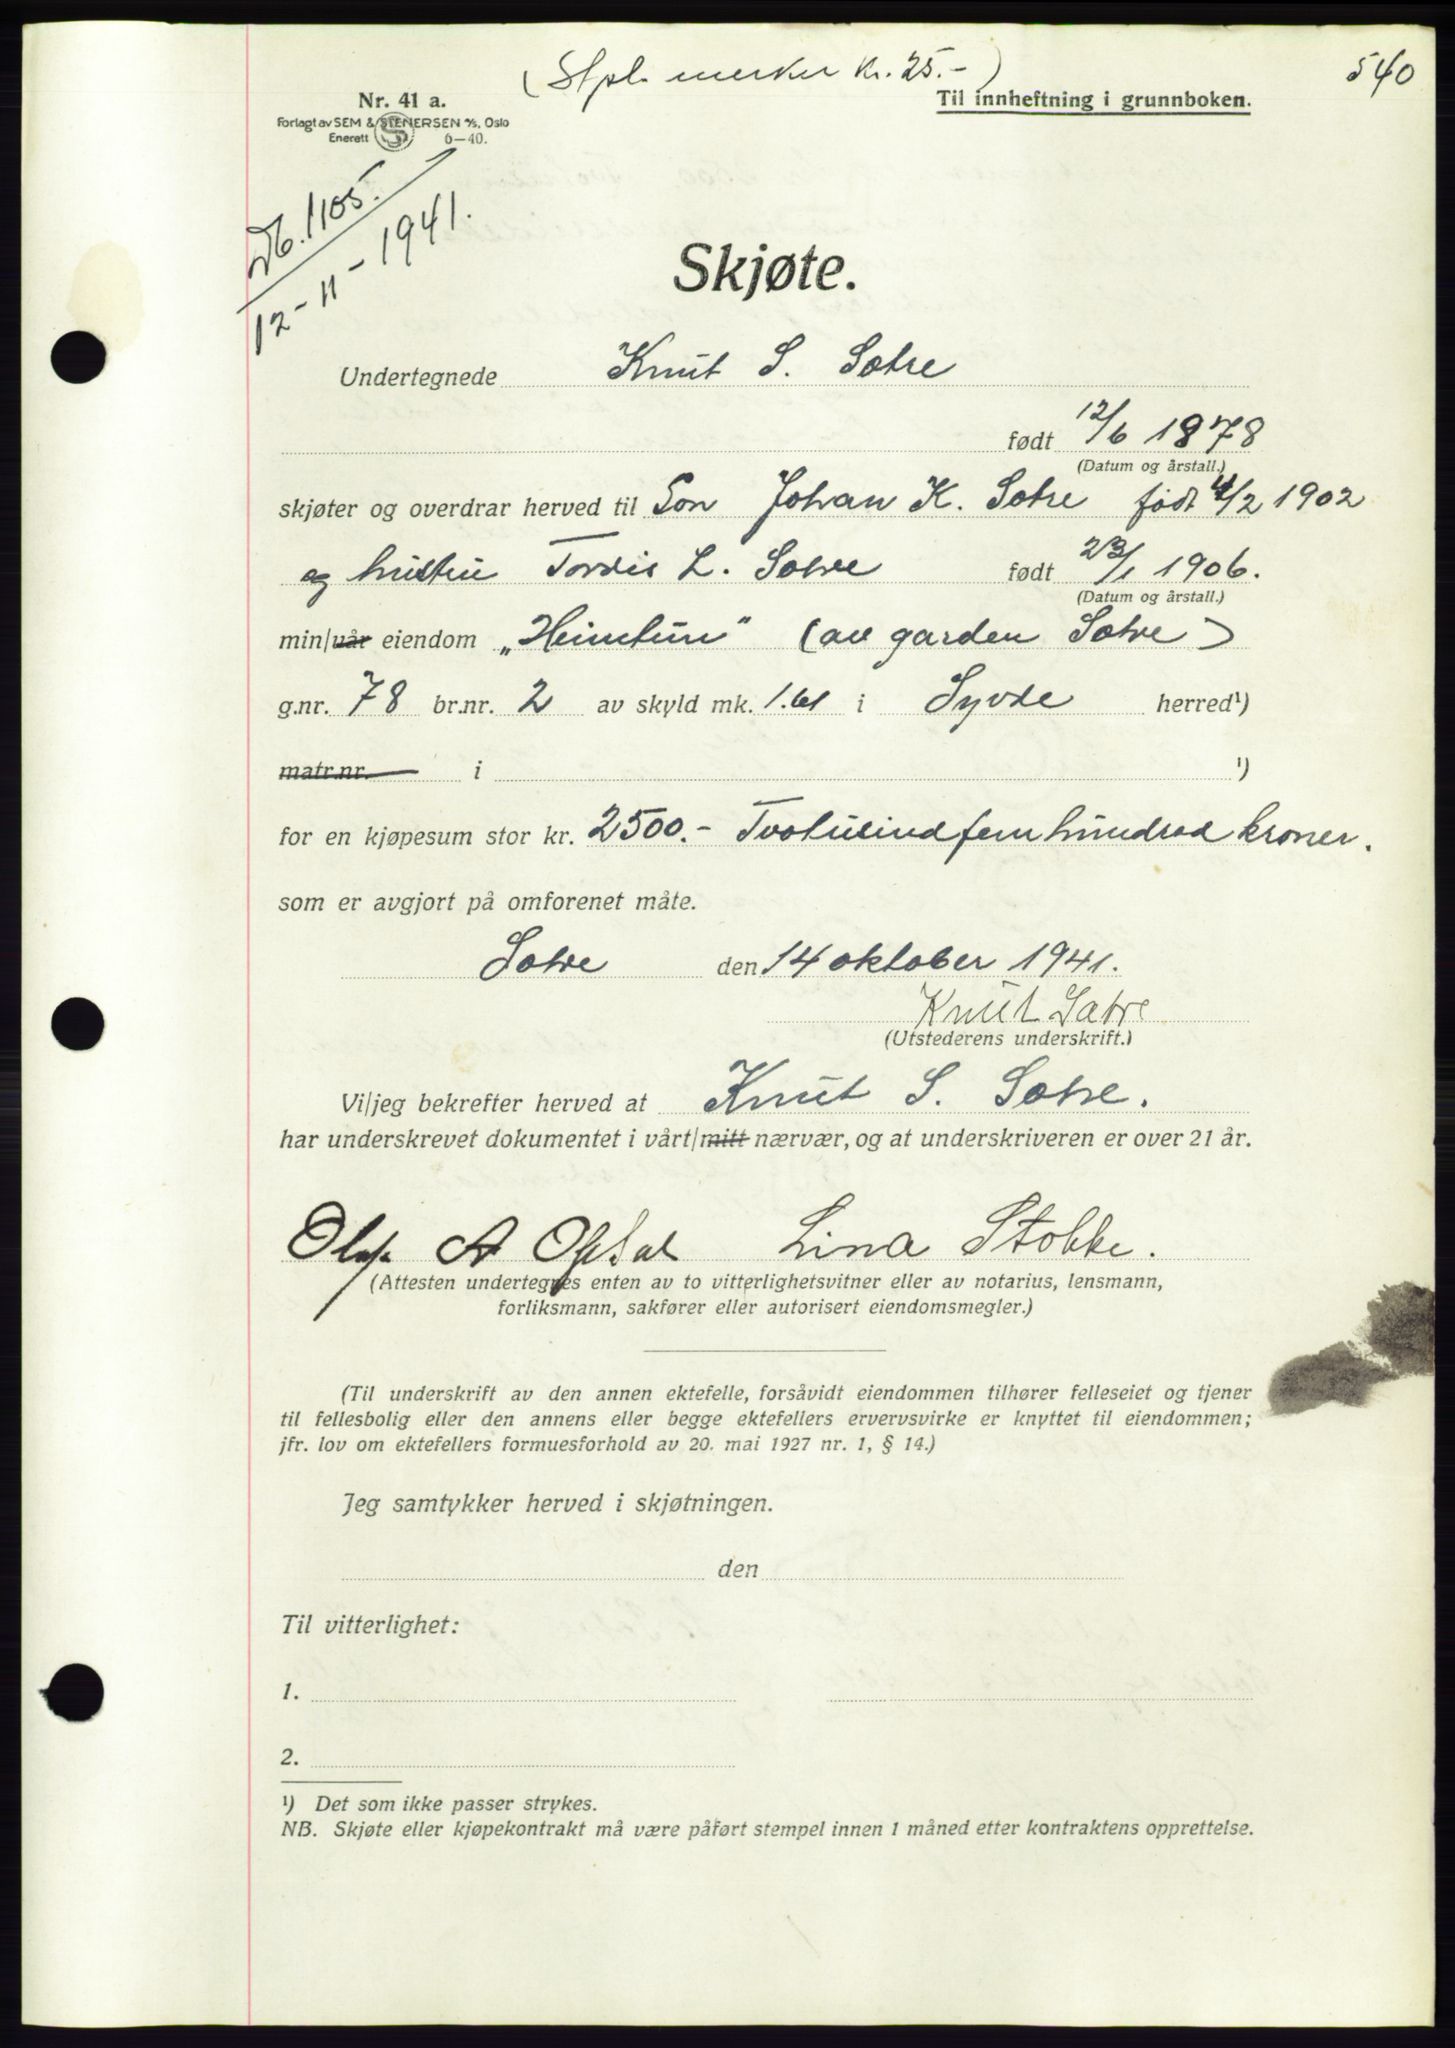 (Stpl. merker kr. 25.-)
540
Nr. 41 a.
Til innheftning i grunnboken.
Forlagt av SEM & STENERSEN A/S, Oslo
Enerett 6—40.
Db. 1105.
12-11-1941.
Skjøte.
Undertegnede Knut S. Sætre
født 12/6 1878
(Datum og årstall.)
skjøter og overdrar herved til Son Johan K. Sætre født 4/2 1902
og hustru Tordis L. Sætre født 23/1 1906.
(Datum og årstall.)
min/vår eiendom „Heimtun" (av garden Sætre)
g.nr. 78 br.nr. 2 av skyld mk. 1.61 i Syvde herred¹)
matr.nr. i ¹)
for en kjøpesum stor kr. 2500.- Tvotusind fem hundrad kroner.
som er avgjort på omforenet måte.
Sætre den 14 oktober 1941.
Knut Sætre
(Utstederens underskrift.)
Vi/jeg bekrefter herved at Knut S. Sætre.
har underskrevet dokumentet i vårt/mitt nærvær, og at underskriveren er over 21 år.
Olaf A Opsal Lina Stokke.
(Attesten undertegnes enten av to vitterlighetsvitner eller av notarius, lensmann,
forliksmann, sakfører eller autorisert eiendomsmegler.)
(Til underskrift av den annen ektefelle, forsåvidt eiendommen tilhører felleseiet og tjener
til fellesbolig eller den annens eller begge ektefellers ervervsvirke er knyttet til eiendommen;
jfr. lov om ektefellers formuesforhold av 20. mai 1927 nr. 1, § 14.)
Jeg samtykker herved i skjøtningen.
den
Til vitterlighet:
1.
2.
¹) Det som ikke passer strykes.
NB. Skjøte eller kjøpekontrakt må være påført stempel innen 1 måned etter kontraktens opprettelse.